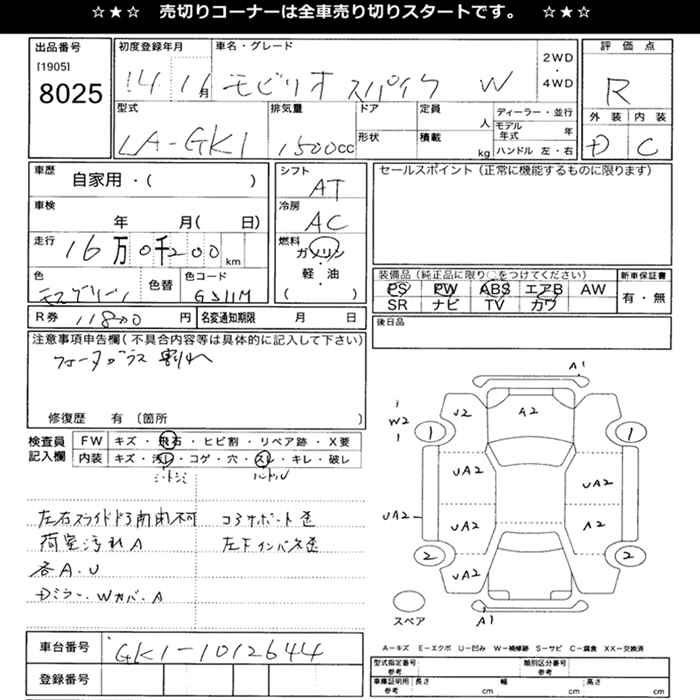 ☆★☆ 売切りコーナーは全車売り切りスタートです。 ☆★☆
出品番号
[1905]
8025
初度登録年月
14 11月
車名・グレード
モビリオ スパイク W
2WD
・
4WD
評価点
R
外装 内装
D C
型式
LA-GK1
排気量
1500cc
ドア
形状
定員
人
積載
kg
ディーラー・並行
モデル年式 年
ハンドル 左・右
車歴
自家用・( )
車検
年 月( 日)
走行
16万0千200km
色
モスグリーン
色替
色コード
G511M
シフト
AT
冷房
AC
燃料
ガソリン
・
軽・油
( )
セールスポイント(正常に機能するものに限ります)
装備品(純正品に限り○をつけてください)
PS PW ABS エアB AW
SR ナビ TV カワ
新車保証書
有・無
後日品
R券 11800円
名変通知期限 月 日
注意事項申告欄(不具合内容等は具体的に記入して下さい)
割れ
修復歴 有 〔箇所 〕
検査員
記入欄
FW キズ・飛石・ヒビ割・リペア跡・X要
内装 キズ・汚レ・コゲ・穴・スレ・キレ・破レ
ハンドル
左右スライドドア開閉不可
コアサポート歪
荷室汚れA
左下インパネ歪
各A.U
Dミラー.Wカバ.A
A1
W2
U2
A2
1
1
UA2
UA2
UA2
UA2
A2
2
2
UA2
A1
スペア
車台番号
GK1-1012644
登録番号
A-キズ E-エクボ U-凹み W-補修跡 S-サビ C-腐食 XX-交換済
型式指定番号
参考
類別区分番号
参考
車庫証明用
参考
長さ
cm
幅
cm
高さ
cm